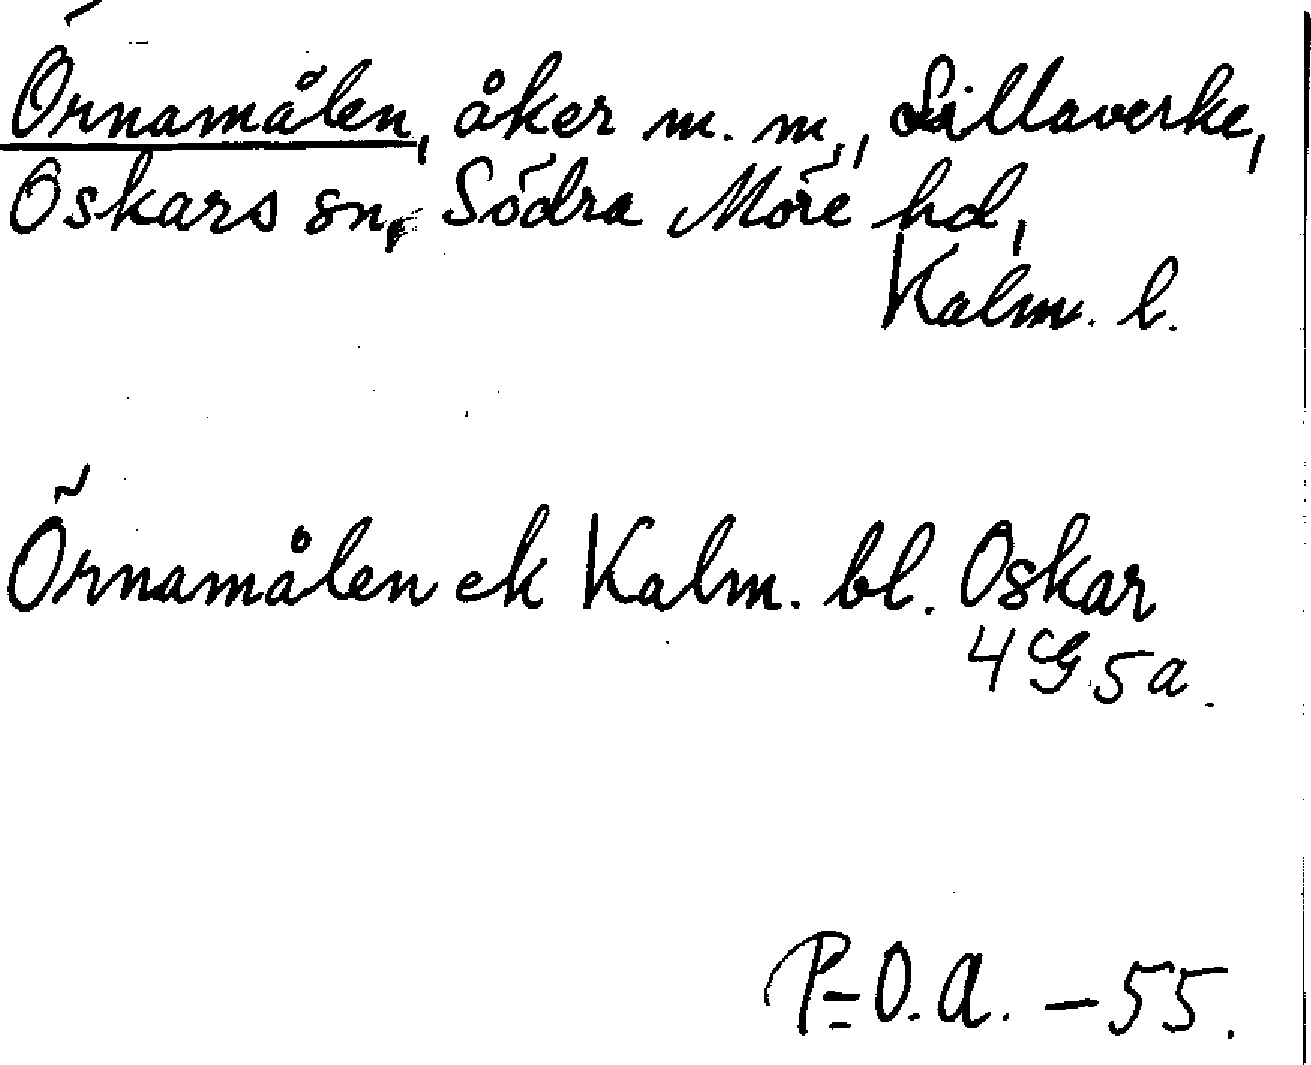 Örnamålen, åker m. m., Lillaverke,
Oskars sn, Södra Möre hd,
Kalm. l.
Örnamålen ek Kalm. bl. Oskar
4G5a.
P-O.A. -55.